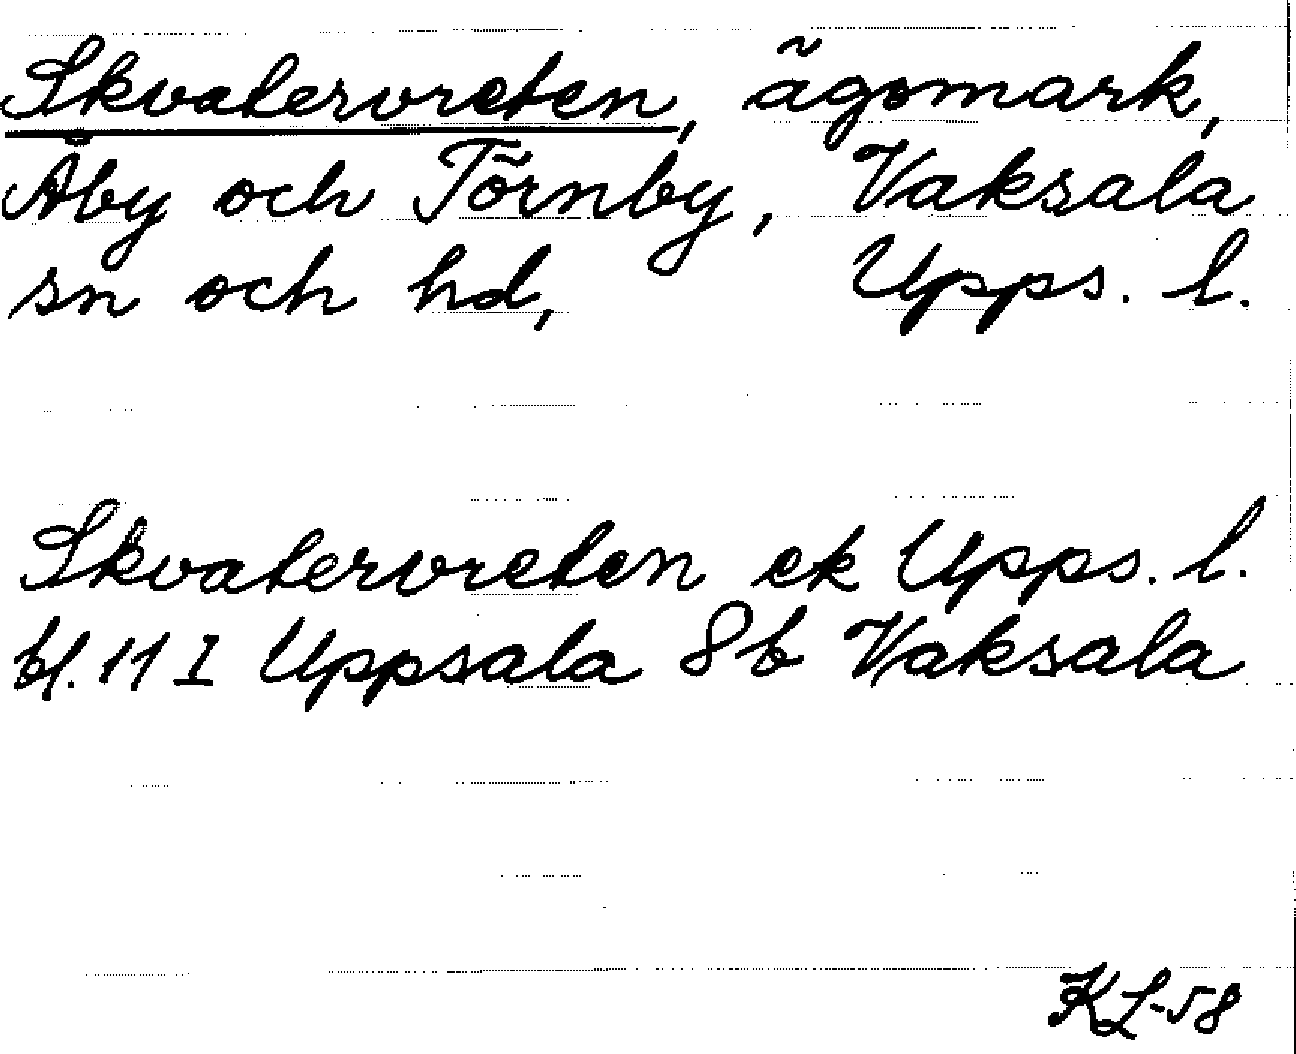 Skvatervreten, ägomark,
Åby och Törnby, Vaksala
sn och hd, Upps. l.
Skvatervreten ek Upps. l.
bl. 11 I Uppsala 8b Vaksala
KL-58